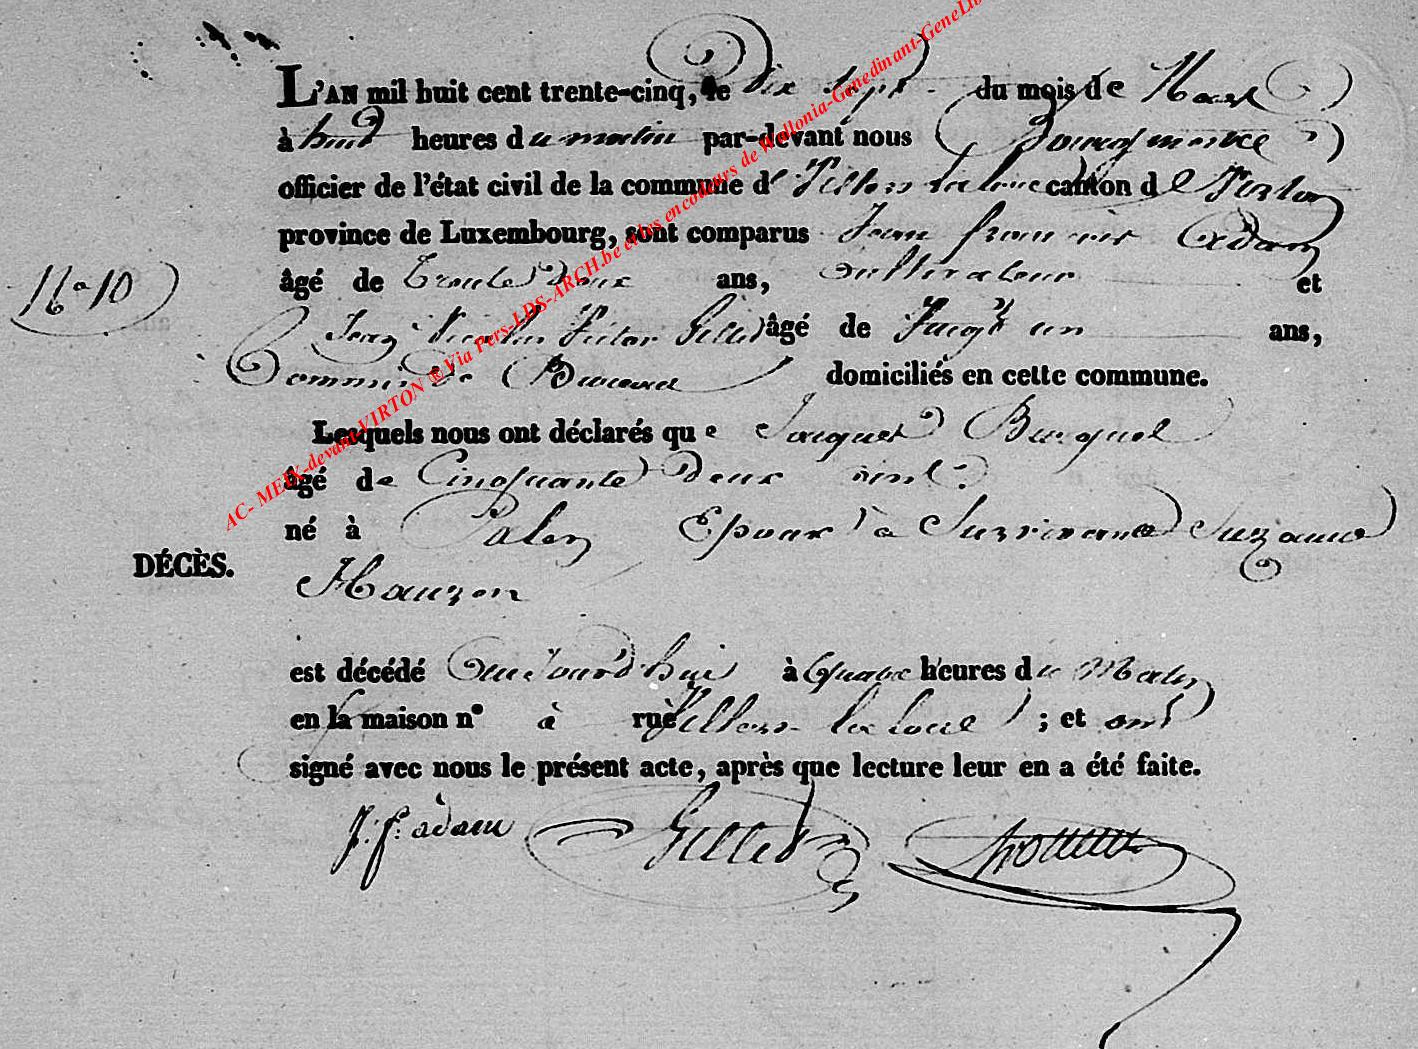 L'AN mil huit cent trente-cinq, le dix sept du mois de Mars
à huit heures du matin par-devant nous Bourgmestre
officier de l'état civil de la commune de Villers la loue canton de Virton
province de Luxembourg, sont comparus Jean françois Adam
N° 10
âgé de trente deux ans, cultivateur et
Jean Nicolas Victor Gilles âgé de Vingt un ans,
Commis de Bureau domiciliés en cette commune.
Lesquels nous ont déclarés que Jacques Busquel
âgé de Cinquante deux ans
né à Epoux à Survivante Suzanne
DÉCÈS.
Hauzon
est décédé Aujourd'hui à quatre heures du Matin
en la maison n° à rue Villers la loue ; et ont
signé avec nous le présent acte, après que lecture leur en a été faite.
J. f. adam Gilles
AC- MEIX-devant-VIRTON ® Via Pers-LDS-ARCH.be et les encodeurs de Wallonia-Genedinant-GeneLib